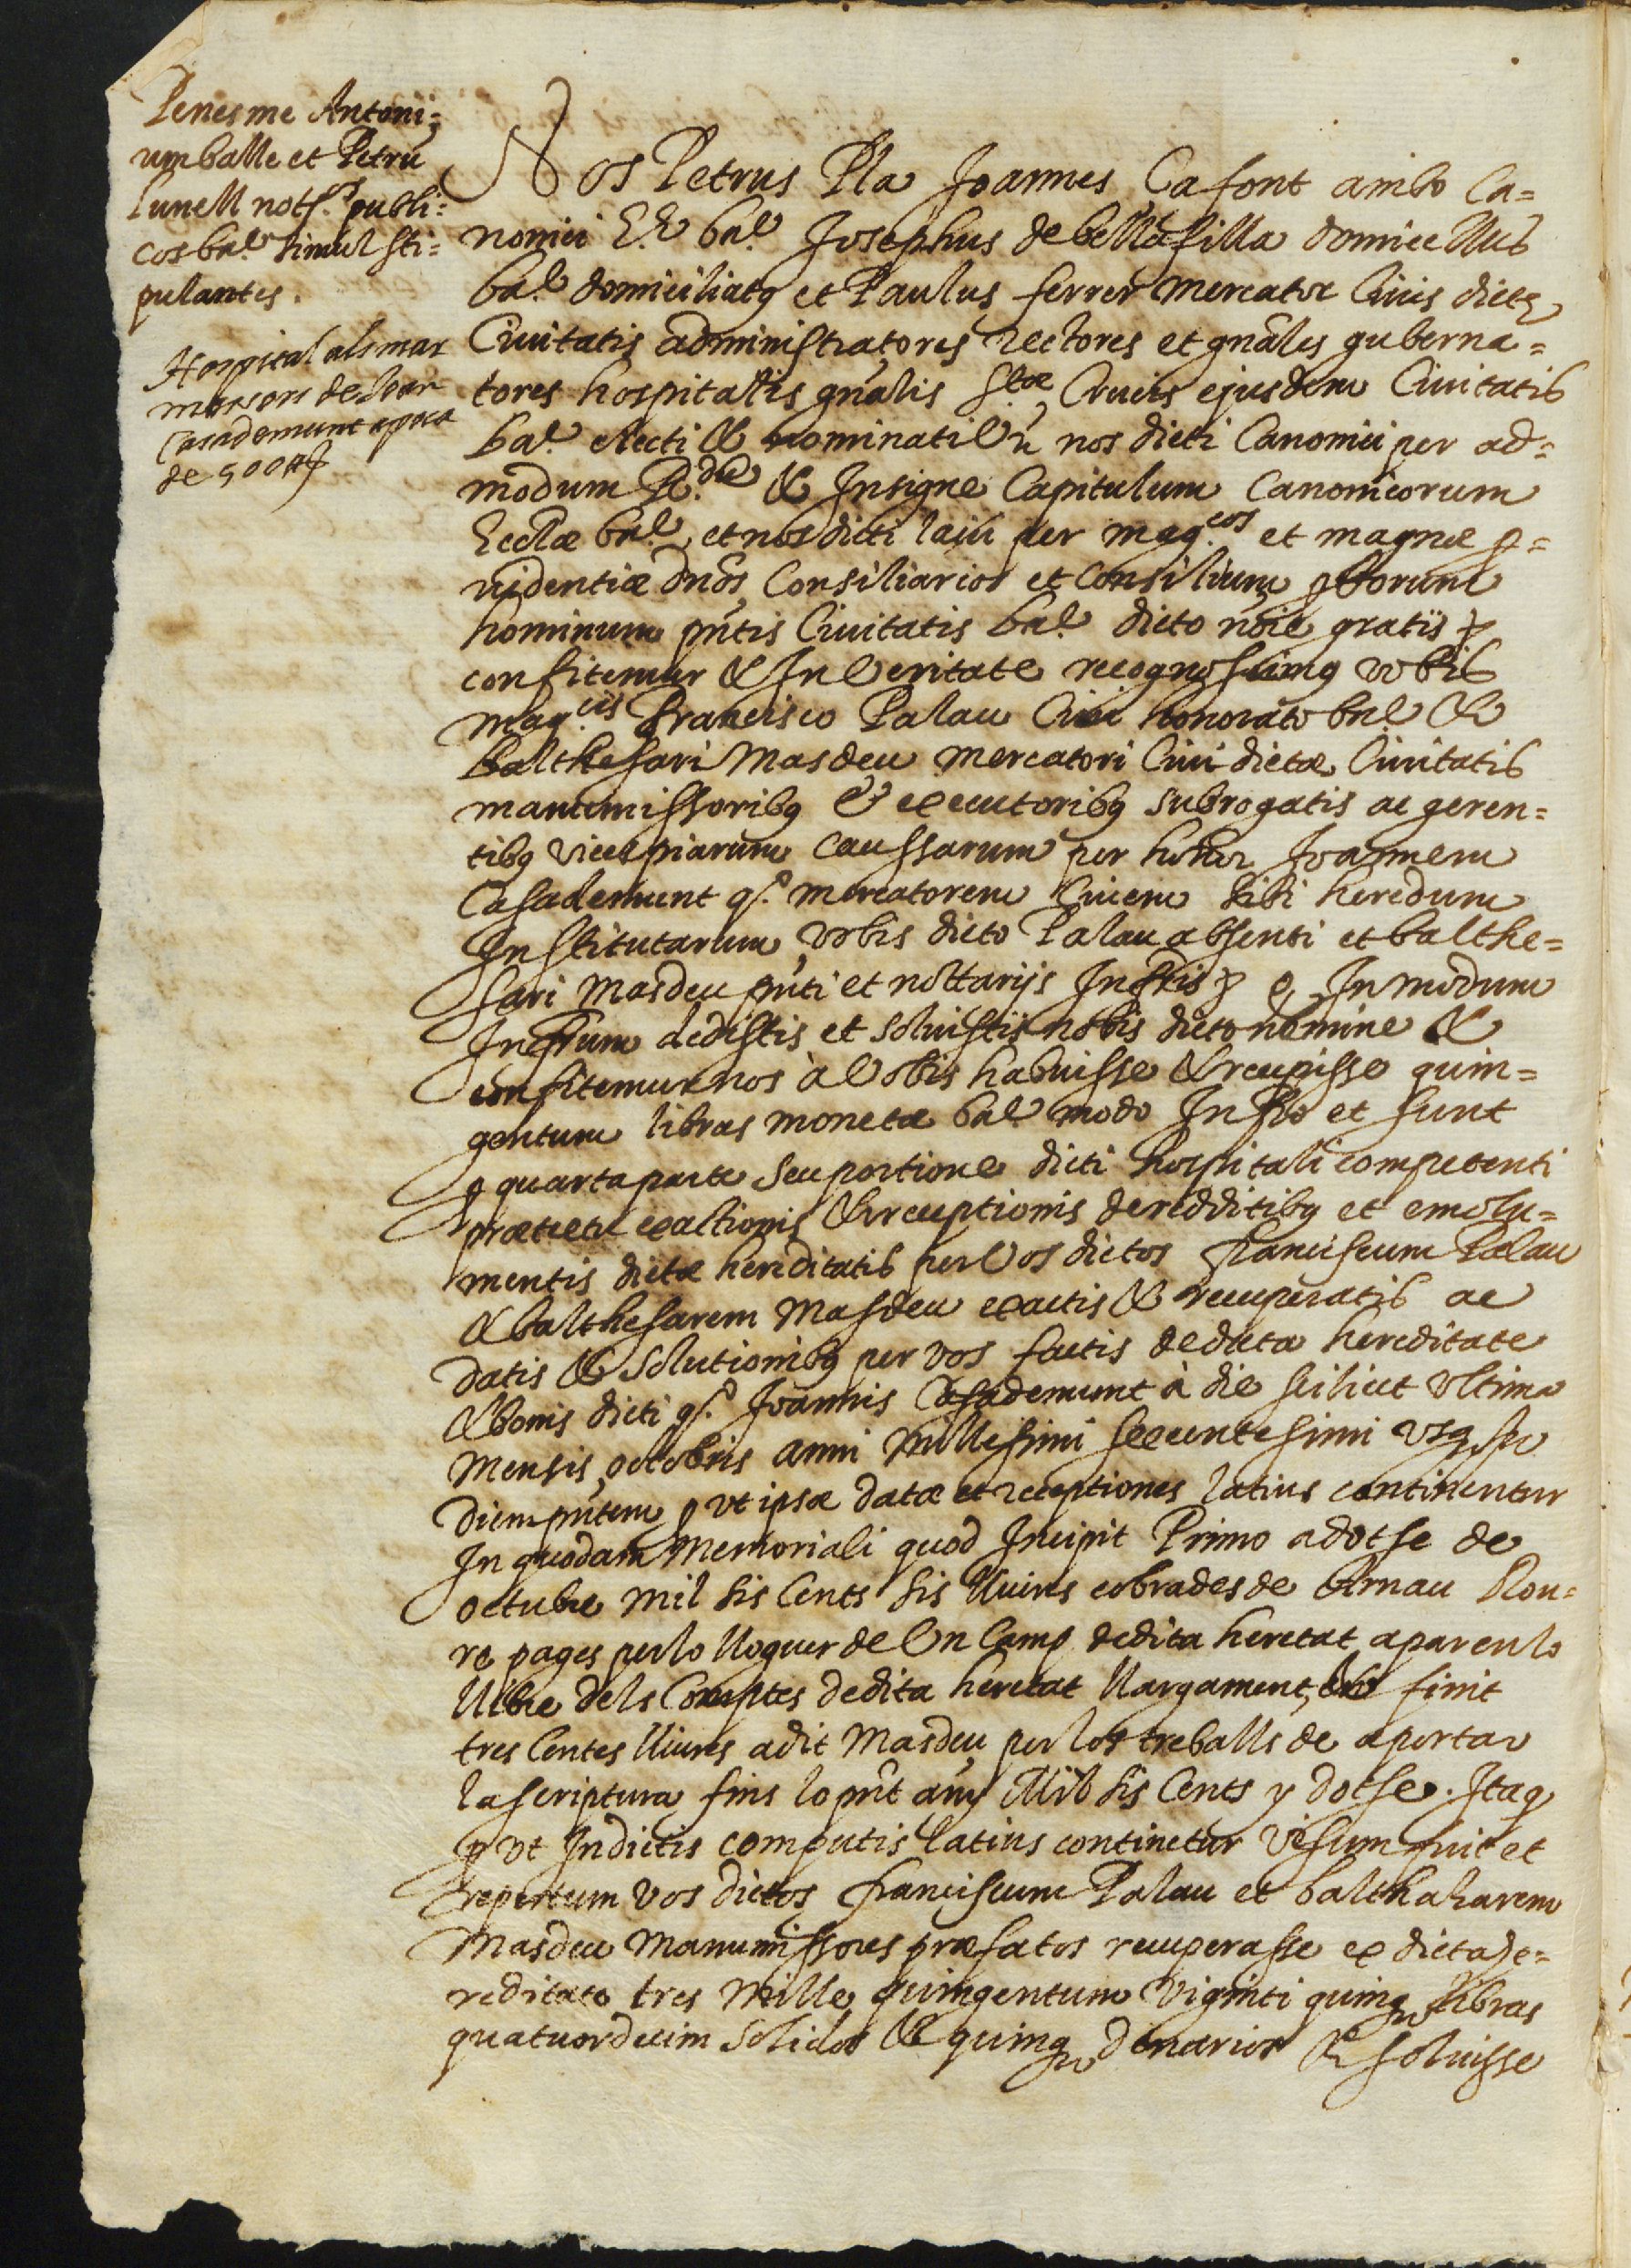 Penes me Antoni=
um balle et Petrũ
lunell notſ.os publi=
cos bar. simul sti=
pulantes.
Hospital als mar
mersors de Joan
Casademunt apoca
de 500 ll
Nos Petrus Pla Joannes Çafont ambo Ca=
nonici bar. Josephus de bellafilla domicellus
bar. domiciliatq et Paulus ferrer mercator Ciuis dictę
Ciuitatis administratores rectores et gnãles guberna=
tores hospitalis gnãlis S.tæ Crucis ejusdem Ciuitatis
bar. electi & nominati nos dicti Canonici per ad=
modum R.dũ & Insigne Capitulum Canonicorum
Ecclæ bar. et nos dicti laici per mag.cos et magnæ p=
uidentiæ dnõs Consiliarios et Consilium pborum
hominum pñtis Ciuitatis bar. dicto nõie gratis
confitemur & In Veritate recognoscimq vobis
mag.cis francisco Palau Ciui honorato bar. &
balthesari Masdeu mercatori Ciui dictæ Ciuitatis
manumissoribq & executoribq subrogatis ac geren=
tibq vices piarum caussarum per honor. Joannem
Casademunt qº. mercatorem Ciuem sibi heredum
Institutarum vobis dicto Palau absenti et balthe=
sari Masdeu pñti et nottarijs Infris In modum
Infrum dedistis et soluistis nobis dicto nomine &
confitemur nos à Vobis habuisse & recepisse quin=
gentum libras monetæ bar. modo Infro et sunt
p quarta parte seu portione dicti hospitali competenti
prætextu exactionis & receptionis de redditibq et emolu=
mentis dictæ hereditatis per Vos dictos franciscum Palau
& balthesarem Masdeu exactis & recuperatis ac
datis & solutionibq per vos factis de dicta hereditate
& bonis dicti qº. Joannis Casademunt à die scilicet vltima
mensis octobris anni Millesimi sexcentesimi vsq in
diem pñtem p vt ipsæ datæ et receptiones latius continentur
In quodam Memoriali quod Incipit Primo a dotse de
octubre mil sis Cents sis lliures cobrades de Arnau Rou=
re pages per lo lloguer de Vn Camp de dita heretat apar en lo
llibre dels Comptes de dita heretat llargament, & finit
tres Centes lliures a dit Masdeu per los treballs de aportar
la scriptura fins lo pñt any Mil sis Cents y dotse. Itaq
p vt In dictis computis latius continetur visum fuit et
repertum vos dictos franciscum Palau et balthazarem
Masdeu Manumissores præfatos recuperasse ex dicta he=
reditate tres Mille quingentum viginti quinq libras
quatuordecim solidos & quinq denarios & soluisse